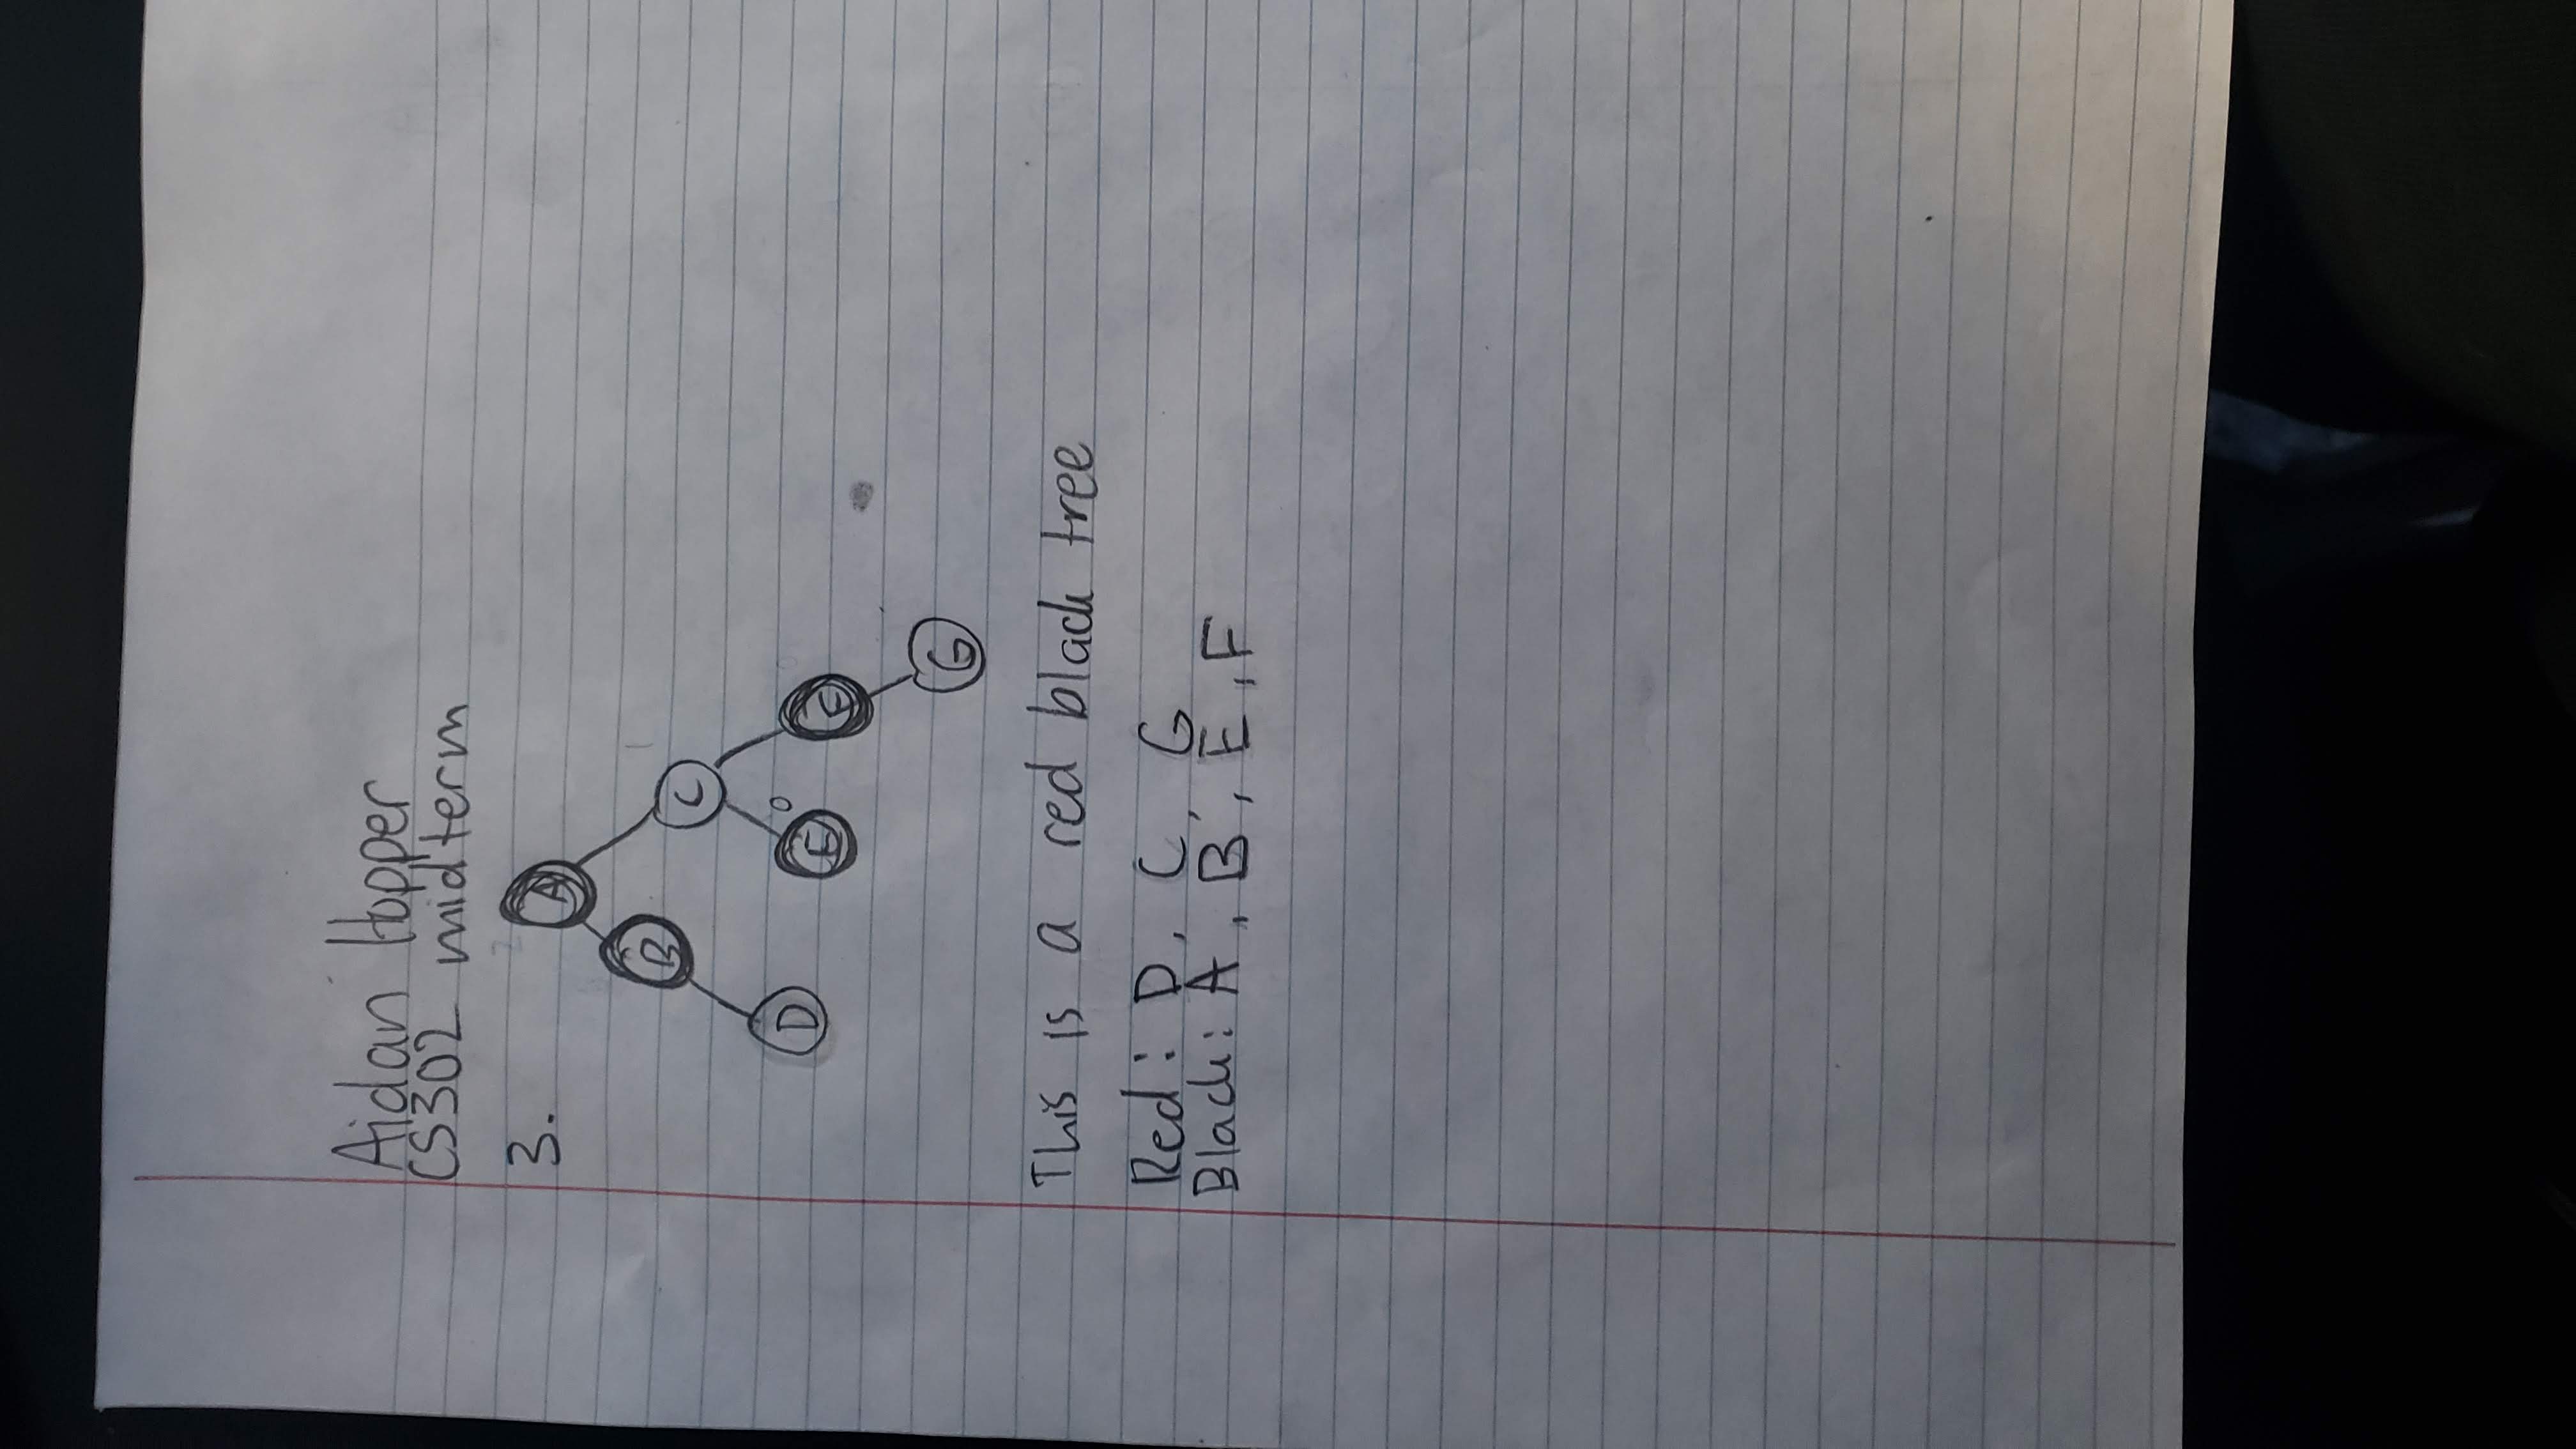 Aidan Hopper
CS302 midterm
3.
A
B
C
D
E
0
F
G
This is a red black tree
Red: D, C, G
Black: A, B, E, F